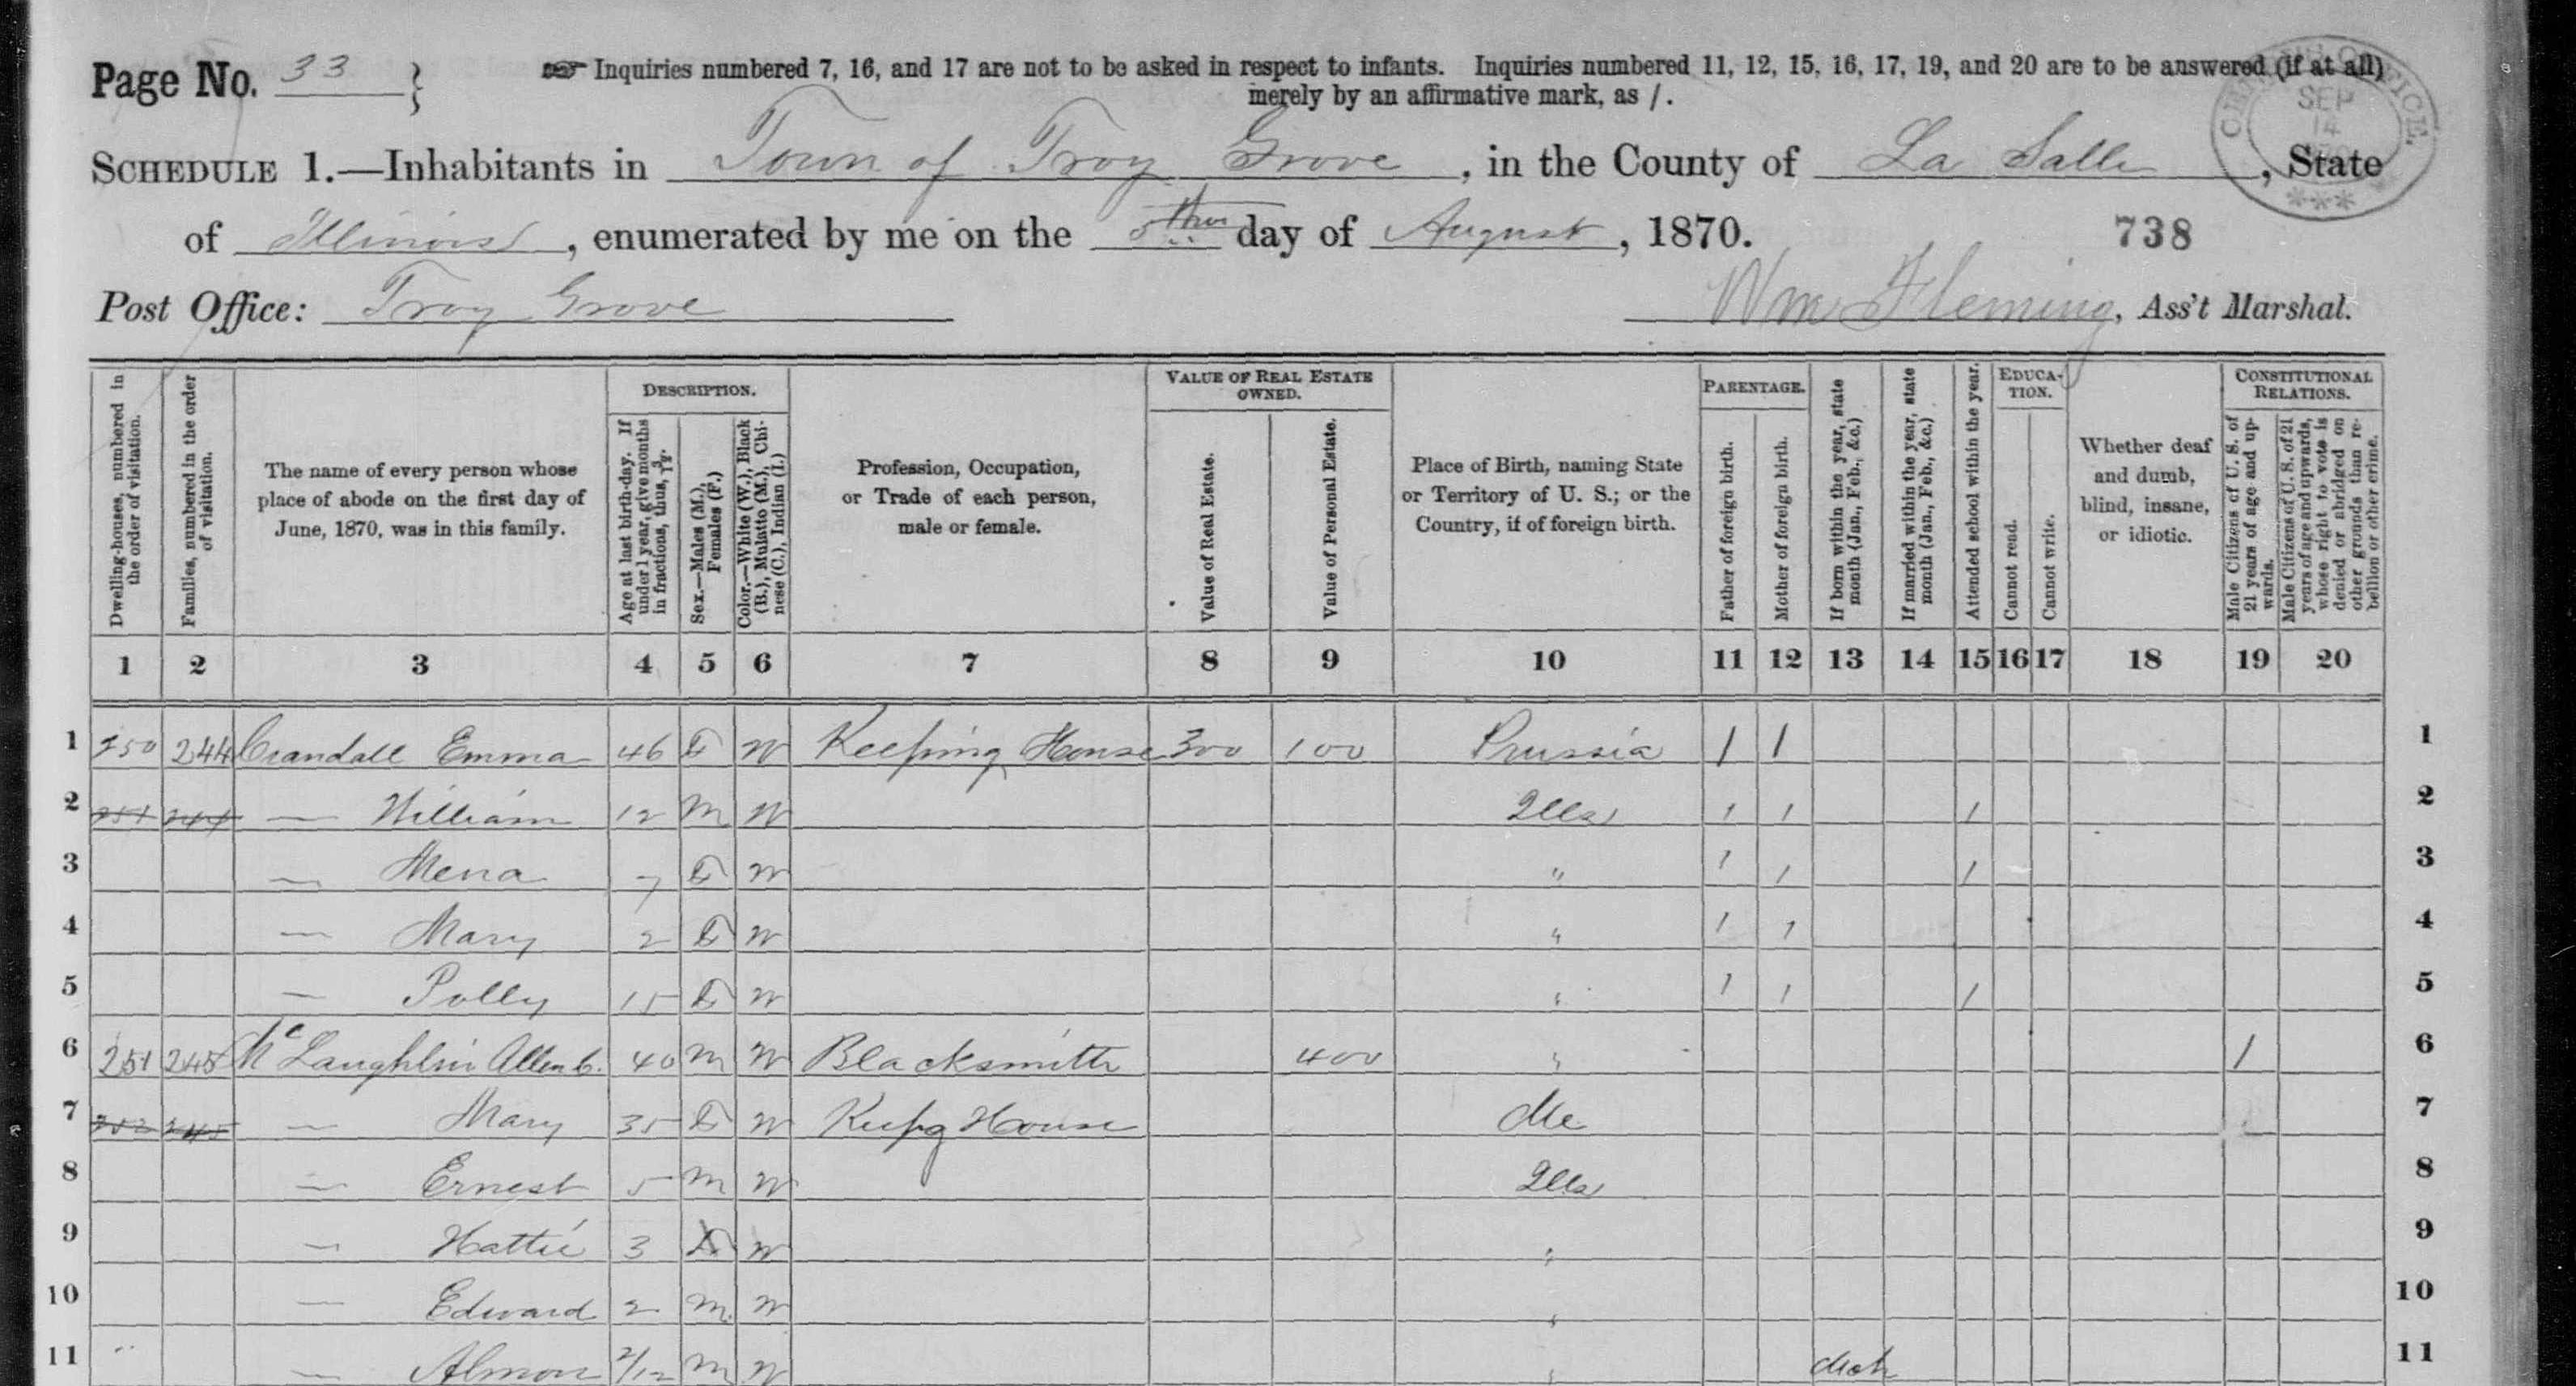 Page No. 33 }
Inquiries numbered 7, 16, and 17 are not to be asked in respect to infants. Inquiries numbered 11, 12, 15, 16, 17, 19, and 20 are to be answered (if at all)
merely by an affirmative mark, as /.
SCHEDULE 1.—Inhabitants in Town of Troy Grove, in the County of La Salle, State
of Illinois, enumerated by me on the 5th day of August, 1870.
738
Post Office: Troy Grove
Wm Fleming, Ass't Marshal.
SEP
14
Dwelling-houses, numbered in the order of visitation.
Families, numbered in the order of visitation.
The name of every person whose
place of abode on the first day of
June, 1870, was in this family.
DESCRIPTION.
Age at last birth-day. If under 1 year, give months in fractions, thus, 3/12.
Sex.—Males (M.), Females (F.)
Color.—White (W.), Black (B.), Mulatto (M.), Chinese (C.), Indian (I.)
Profession, Occupation,
or Trade of each person,
male or female.
VALUE OF REAL ESTATE
OWNED.
Value of Real Estate.
Value of Personal Estate.
Place of Birth, naming State
or Territory of U. S.; or the
Country, if of foreign birth.
PARENTAGE.
Father of foreign birth.
Mother of foreign birth.
If born within the year, state month (Jan., Feb., &c.)
If married within the year, state month (Jan., Feb., &c.)
Attended school within the year.
EDUCA-
TION.
Cannot read.
Cannot write.
Whether deaf
and dumb,
blind, insane,
or idiotic.
CONSTITUTIONAL
RELATIONS.
Male Citizens of U. S. of 21 years of age and upwards.
Male Citizens of U. S. of 21 years of age and upwards, whose right to vote is denied or abridged on other grounds than rebellion or other crime.
1 2 3 4 5 6 7 8 9 10 11 12 13 14 15 16 17 18 19 20
1 250 244 Crandall Emma 46 F W Keeping House 300 100 Prussia / / 1
2 251 244 — William 12 M W Ills / / / 2
3 — Mena 7 F W " / / / 3
4 — Mary 2 F W " / / 4
5 — Polly 15 F W " / / / 5
6 251 245 McLaughlin Allen C. 40 M W Blacksmith 400 " / 6
7 252 245 — Mary 35 F W Keepg House Me 7
8 — Ernest 5 M W Ills 8
9 — Hattie 3 F W " 9
10 — Edward 2 M W " 10
11 — Almon 2/12 M W " Mch 11